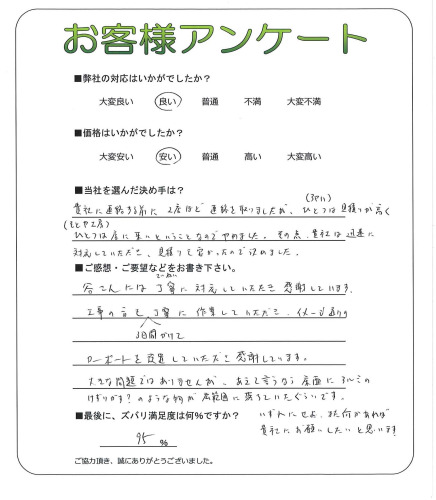 お客様アンケート
■弊社の対応はいかがでしたか？
大変良い 良い 普通 不満 大変不満
■価格はいかがでしたか？
大変安い 安い 普通 高い 大変高い
■当社を選んだ決め手は？
貴社に連絡する前に 2店ほど 連絡を取りましたが、ひとつは 見積りが高く
ひとつは 店に 来いということなのでやめました。その点、貴社は 迅速に
対応していただき、見積りも安かったので決めました。
■ご感想・ご要望などをお書き下さい。
には 丁寧に 対応していただき 感謝しています。
工事の方も 丁寧に 作業していただき、イメージ通りの
3日間かけて
カーポートを設置していただき感謝しています。
大きな問題ではありませんが、あえて言うなら 屋面に アルミの
けずりカス？のような物が 広範囲に 落ちていたぐらいです。
■最後に、ズバリ満足度は何％ですか？
いずれにせよ、また何かあれば
貴社にお願いしたいと思います！
95 %
ご協力頂き、誠にありがとうございました。